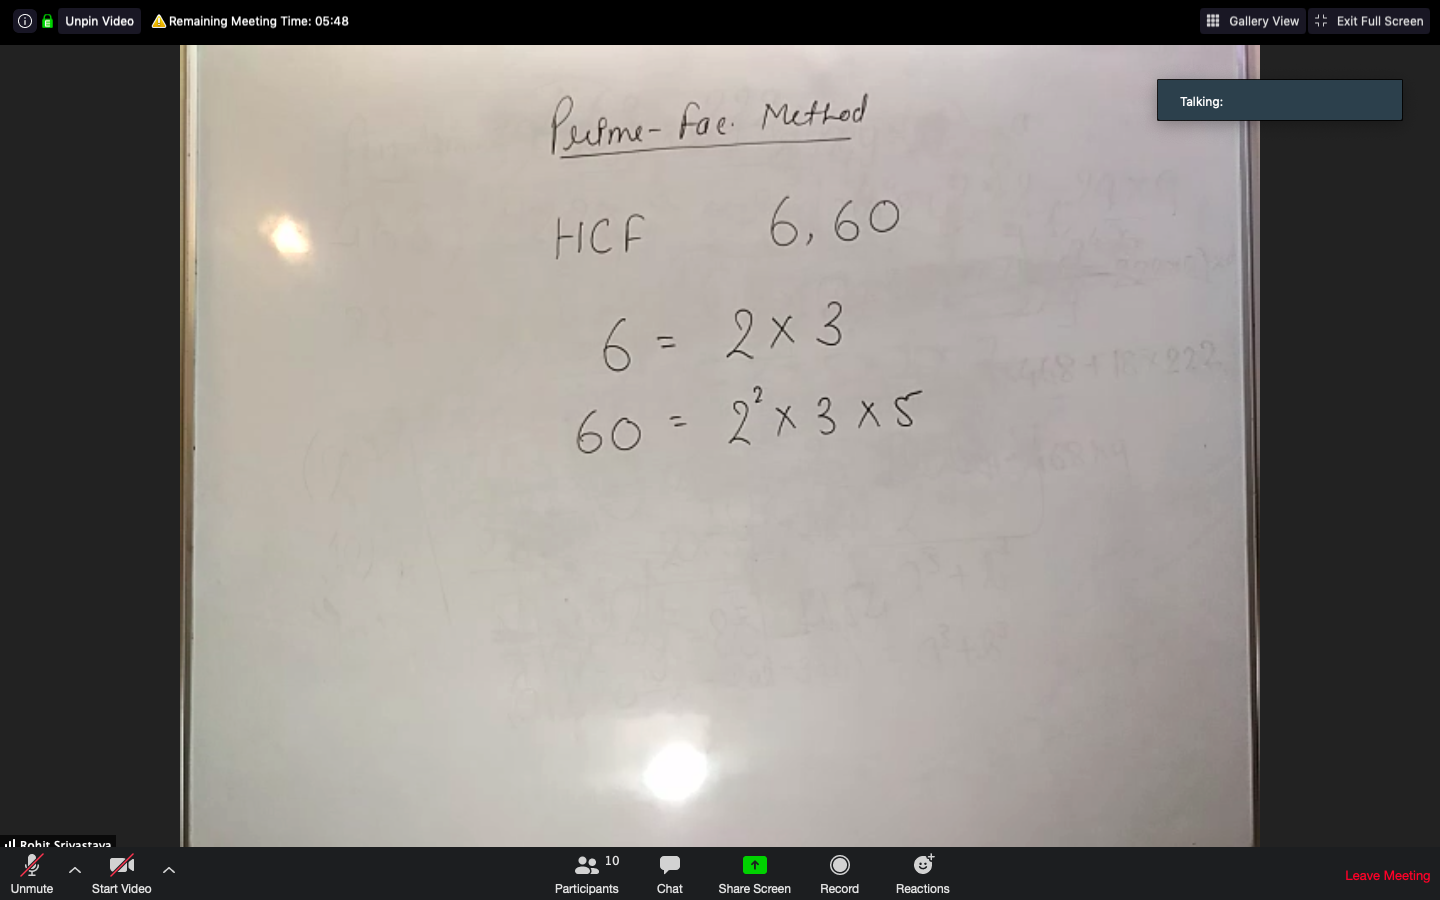 Unpin Video
Remaining Meeting Time: 05:48
Gallery View
Exit Full Screen
Talking:
Prime - Fac. Method
HCF 6, 60
6 = 2 × 3
60 = 2² × 3 × 5
Rohit Srivastava
Unmute
Start Video
10
Participants
Chat
Share Screen
Record
Reactions
Leave Meeting